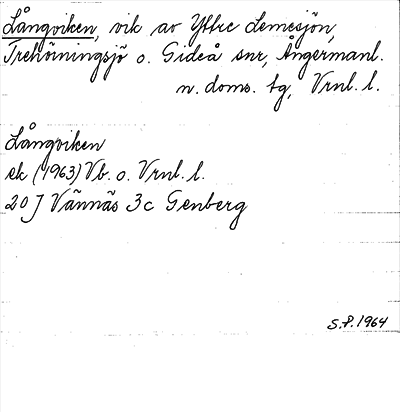 Långviken, vik av Yttre Lemesjön,
Trehörningsjö o. Gideå snr, Ångermanl.
n. doms. tg, Vrnl. l.
Långviken
ek (1963) Vb. o. Vrnl. l.
20 J Vännäs 3c Genberg
S.P. 1964